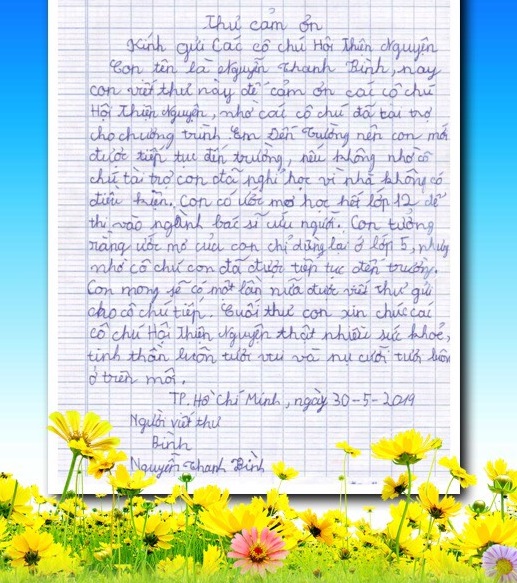 Thư cảm ơn
Kính gửi Các cô chú Hội Thiện Nguyện
Con tên là Nguyễn Thanh Bình, nay
con viết thư này để cảm ơn các cô chú
Hội Thiện Nguyện, nhờ các cô chú đã tài trợ
cho chương trình Em Đến Trường nên con mới
được tiếp tục đến trường, nếu không nhờ cô
chú tài trợ con đã nghỉ học vì nhà không có
điều kiện. Con có ước mơ học hết lớp 12 để
thi vào ngành bác sĩ cứu người. Con tưởng
rằng ước mơ cuả con chỉ dừng lại ở lớp 5, nhưng
nhờ cô chú con đã được tiếp tục đến trường.
Con mong sẽ có một lần nữa được viết thư gửi
cho cô chú tiếp. Cuối thư con xin chúc các
cô chú Hội Thiện Nguyện thật nhiều sức khoẻ,
tinh thần luôn tươi vui và nụ cười tươi luôn
ở trên môi.
TP. Hồ Chí Minh, ngày 30-5-2019
Người viết thư
Bình
Nguyễn Thanh Bình